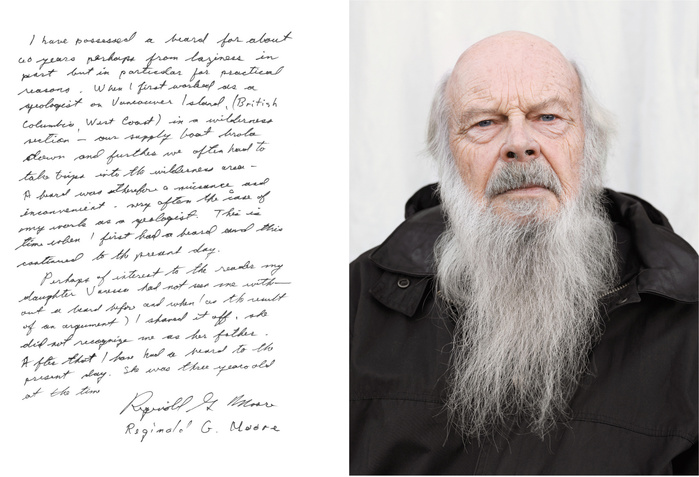 I have possessed a beard for about
40 years perhaps from laziness in
part but in particular for practical
reasons. When I first worked as a
geologist on Vancouver Island, (British
Columbia, West Coast) in a wilderness
section – our supply boat broke
down and further we often had to
take trips into the wilderness area –
A beard was therefore a nuisance and
inconvenient. very often the case of
my work as a geologist. This is
time when I first had a beard and this
continued to the present day.
Perhaps of interest to the reader my
daughter Vanessa had not seen me with-
out a beard before and when (as the result
of an argument) I shaved it off, she
did not recognize me as her father.
After that I have had a beard to the
present day. She was three years old
at the time
Reginald G Moore
Reginald G. Moore